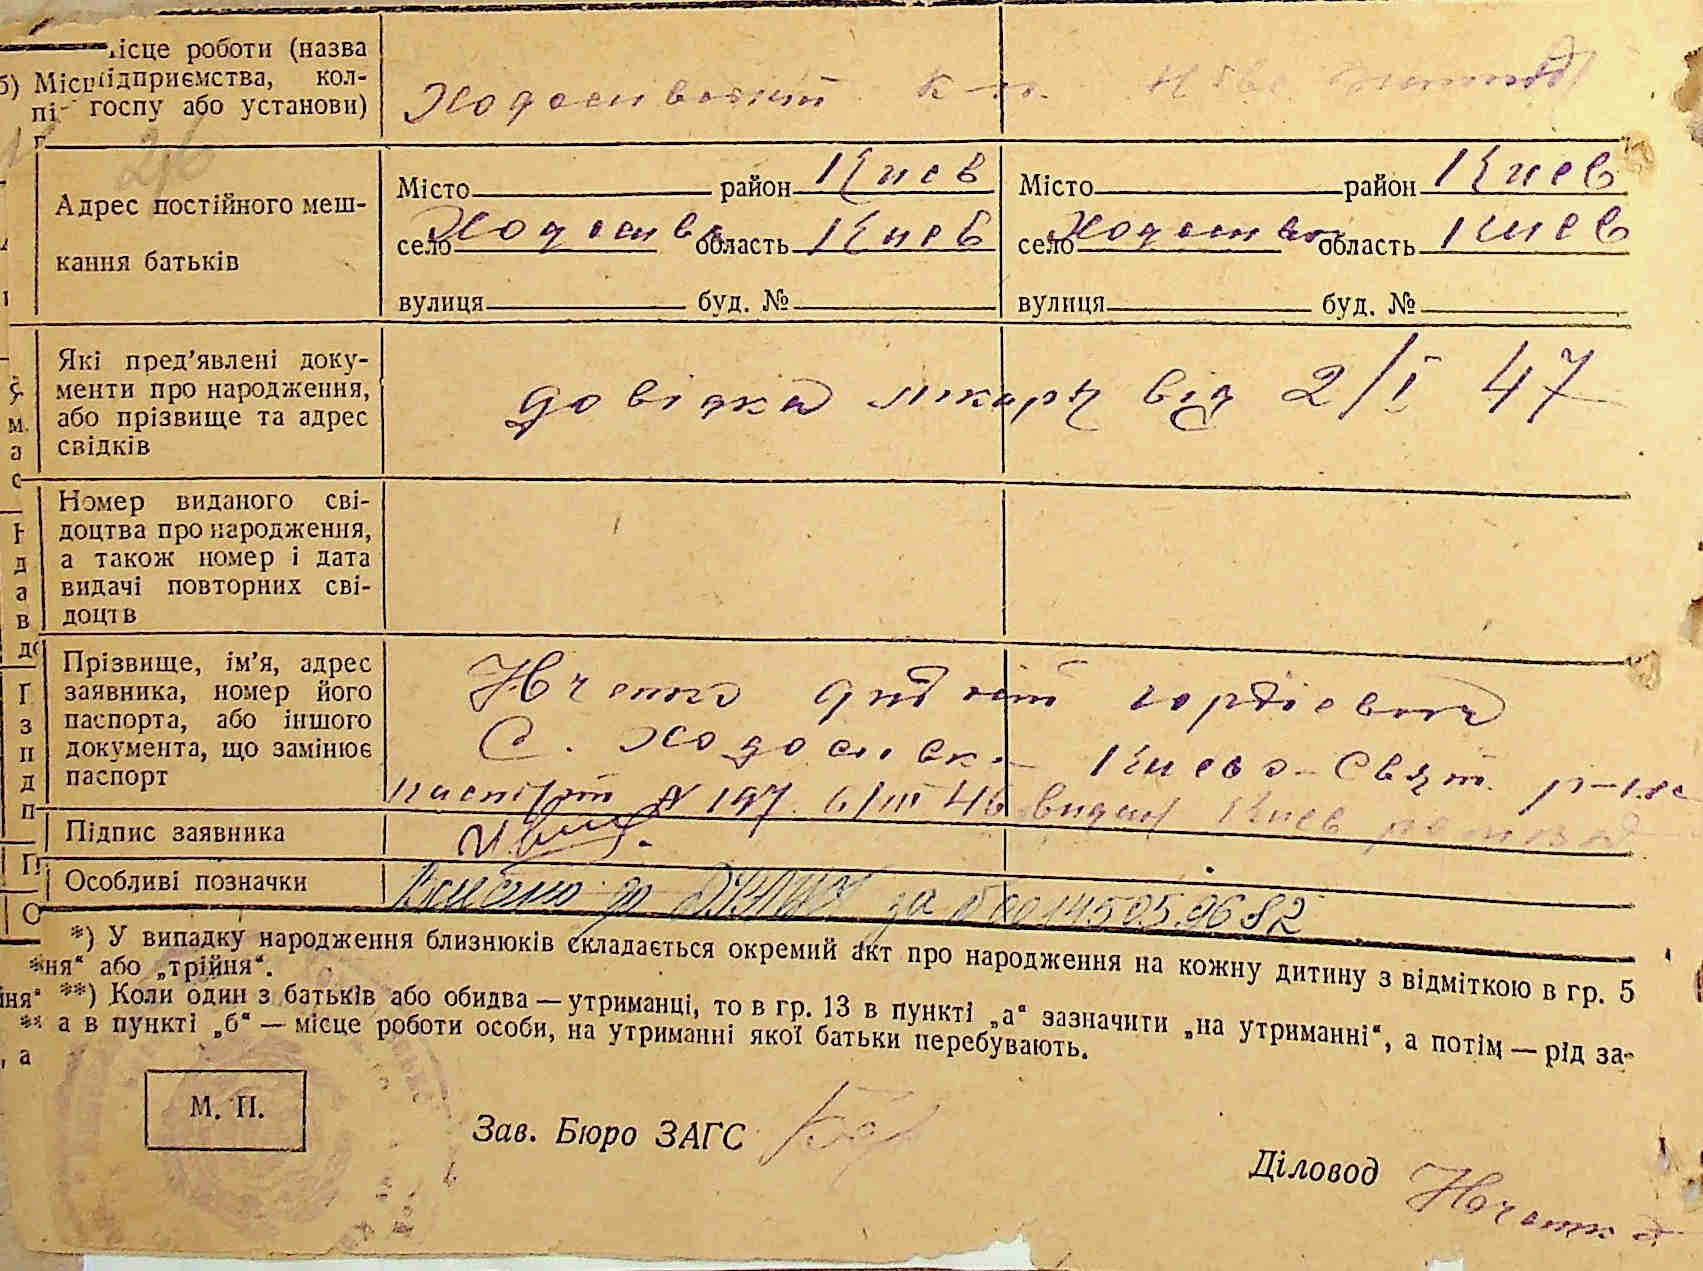 місце роботи (назва
б) Місц підприємства, кол-
пі- госпу або установи)
Ходосивский к-п.
Адрес постійного меш-
кання батьків
Місто район Киев
село Ходосивка область Киев
вулиця буд. №
Місто район Киев
село Ходосивка область Киев
вулиця буд. №
Які пред'явлені доку-
менти про народження,
або прізвище та адрес
свідків
довідка лікаря від 2/I 47
Номер виданого сві-
доцтва про народження,
а також номер і дата
видачі повторних сві-
доцтв
Прізвище, ім'я, адрес
заявника, номер його
паспорта, або іншого
документа, що замінює
паспорт
Юченко гордієвич
С. Ходосивка Києво-Свят. р-на
паспорт № 197 6/III 46 видан Киев
Підпис заявника
Особливі позначки
Внесено до ДРАЦС за № 00145059682
*) У випадку народження близнюків складається окремий акт про народження на кожну дитину з відміткою в гр. 5
"ня" або „трійня“.
**) Коли один з батьків або обидва — утриманці, то в гр. 13 в пункті „а“ зазначити „на утриманні“, а потім — рід за-
а в пункті „б“ — місце роботи особи, на утриманні якої батьки перебувають.
М. П.
Зав. Бюро ЗАГС
Діловод Юченко